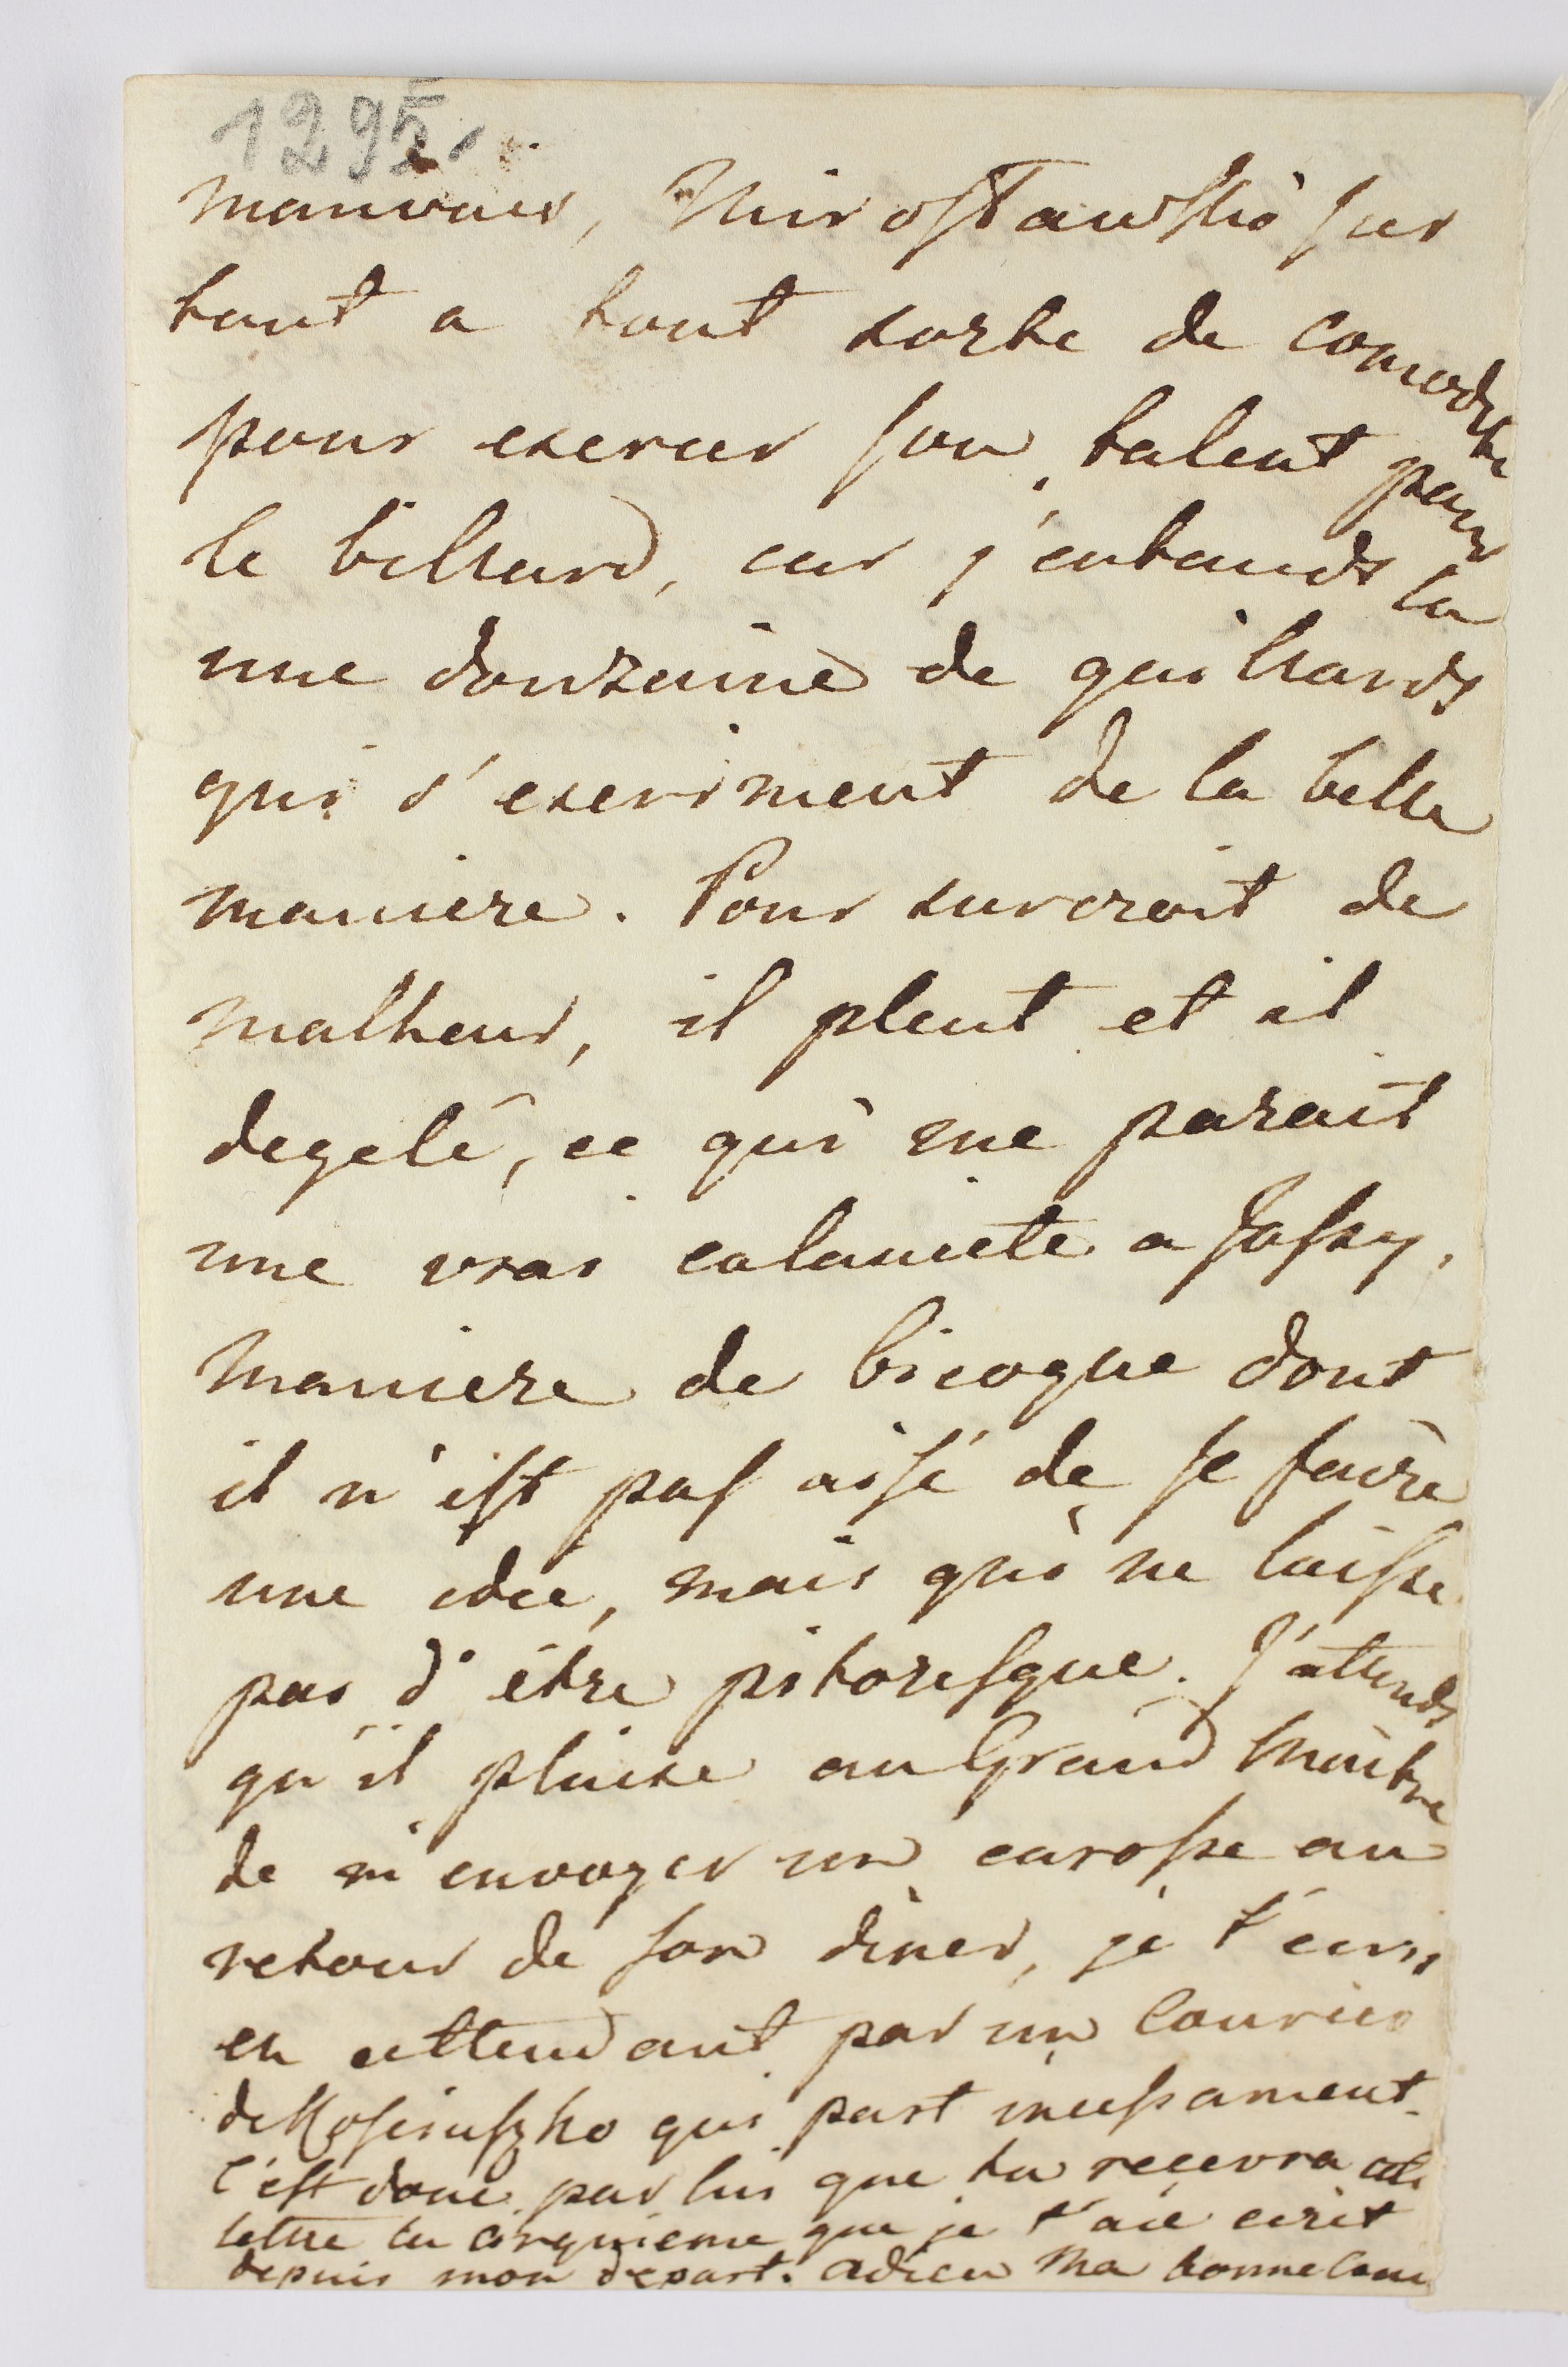 1295.
mauvais, Mirostawski sur
tout a tout sorte de comodite
pour exercer son talent pour
le billard, car j'entands la
une douzaine de guillards
qui s'exeriment de la belle
maniere. Pour surcroit de
malheur, il pleut et il
degelé, ce qui me parait
une vrai calamite a Jassy,
maniere de bicoque dont
il n'est pas aisé de se faire
une idée, mais qui ne laisse
pas d'être pitoresque. J'attends
qu'il plaise au Grand Maitre
de m'envoyer un carosse au
retour de son diner, je t'ecris
en attendant par un Courier
de qui part
C'est donc par lui que tu reçevra cete
lettre la cinquieme que je t'aie ecrit
depuis mon depart. adieu Ma bonne